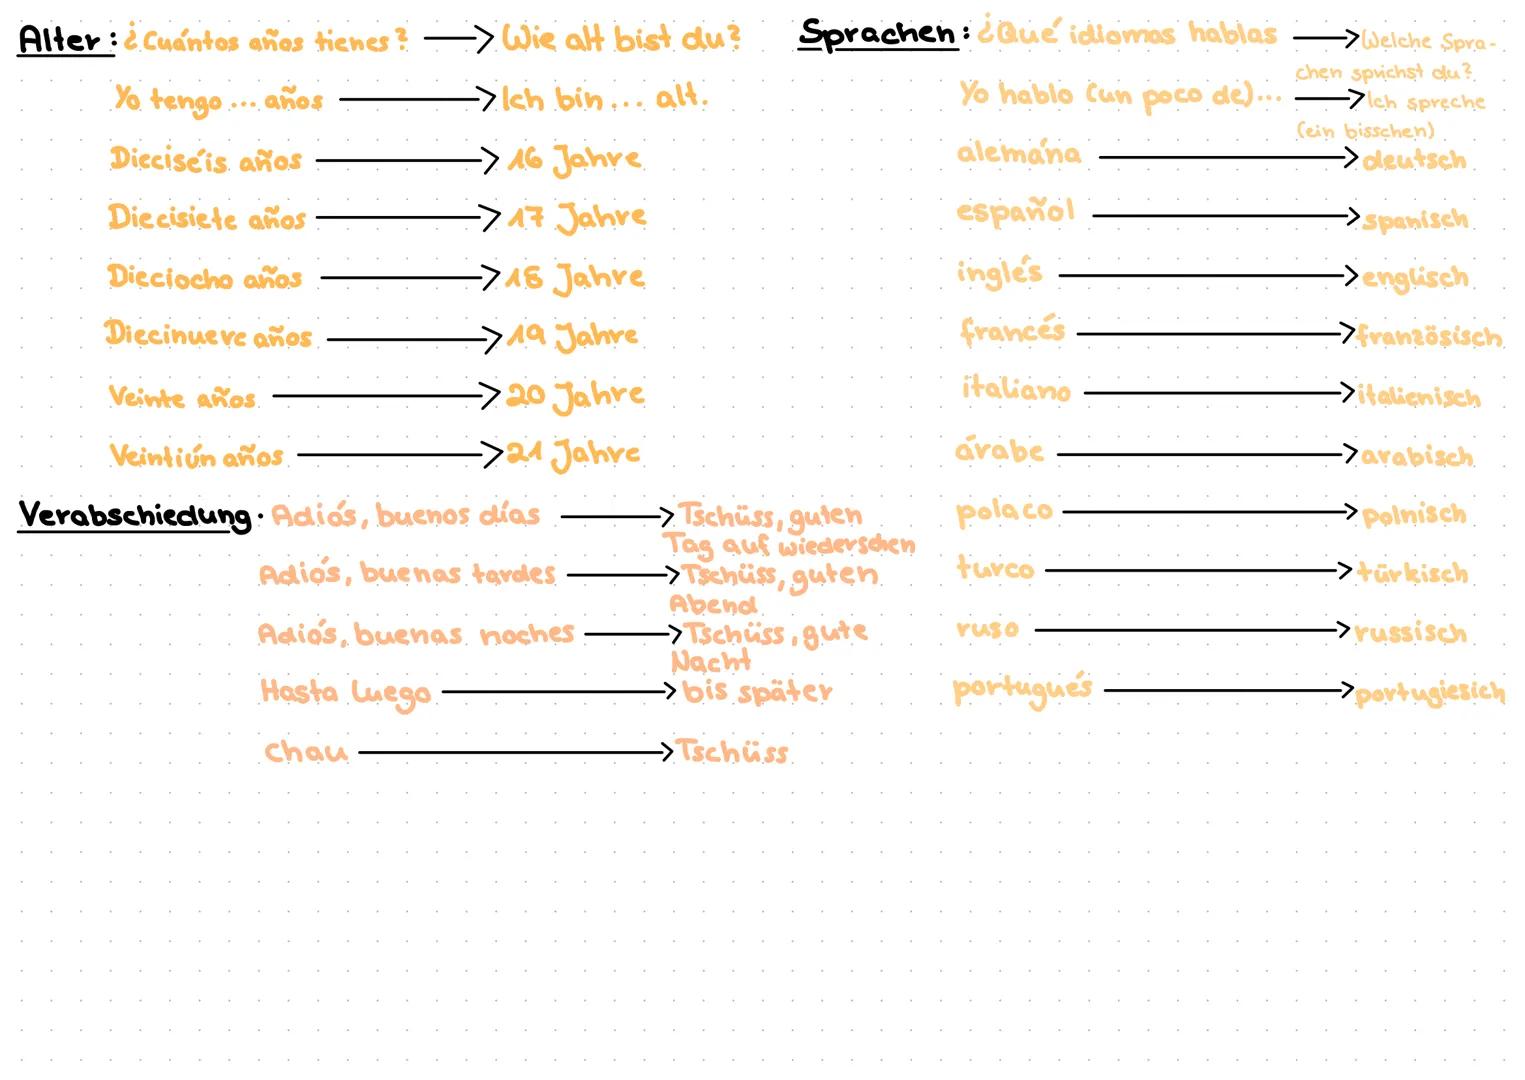 Alter: ¿Cuántos años tienes? → Wie alt bist du?
Yo tengo ... años → Ich bin ... alt.
Dieciséis años → 16 Jahre
Diecisiete años → 17 Jahre
Dieciocho años → 18 Jahre
Diecinueve años → 19 Jahre
Veinte años → 20 Jahre
Veintiún años → 21 Jahre
Verabschiedung: Adiós, buenos días → Tschüss, guten
Tag auf wiedersehen
Adiós, buenas tardes → Tschüss, guten
Abend
Adiós, buenas noches → Tschüss, gute
Nacht
Hasta luego → bis später
chau → Tschüss
Sprachen: ¿Qué idiomas hablas → Welche Spra-
chen sprichst du?
Yo hablo (un poco de)... → Ich spreche
(ein bisschen)
alemána → deutsch
español → spanisch
inglés → englisch
francés → französisch
italiano → italienisch
árabe → arabisch
polaco → polnisch
turco → türkisch
ruso → russisch
portugués → portugiesich